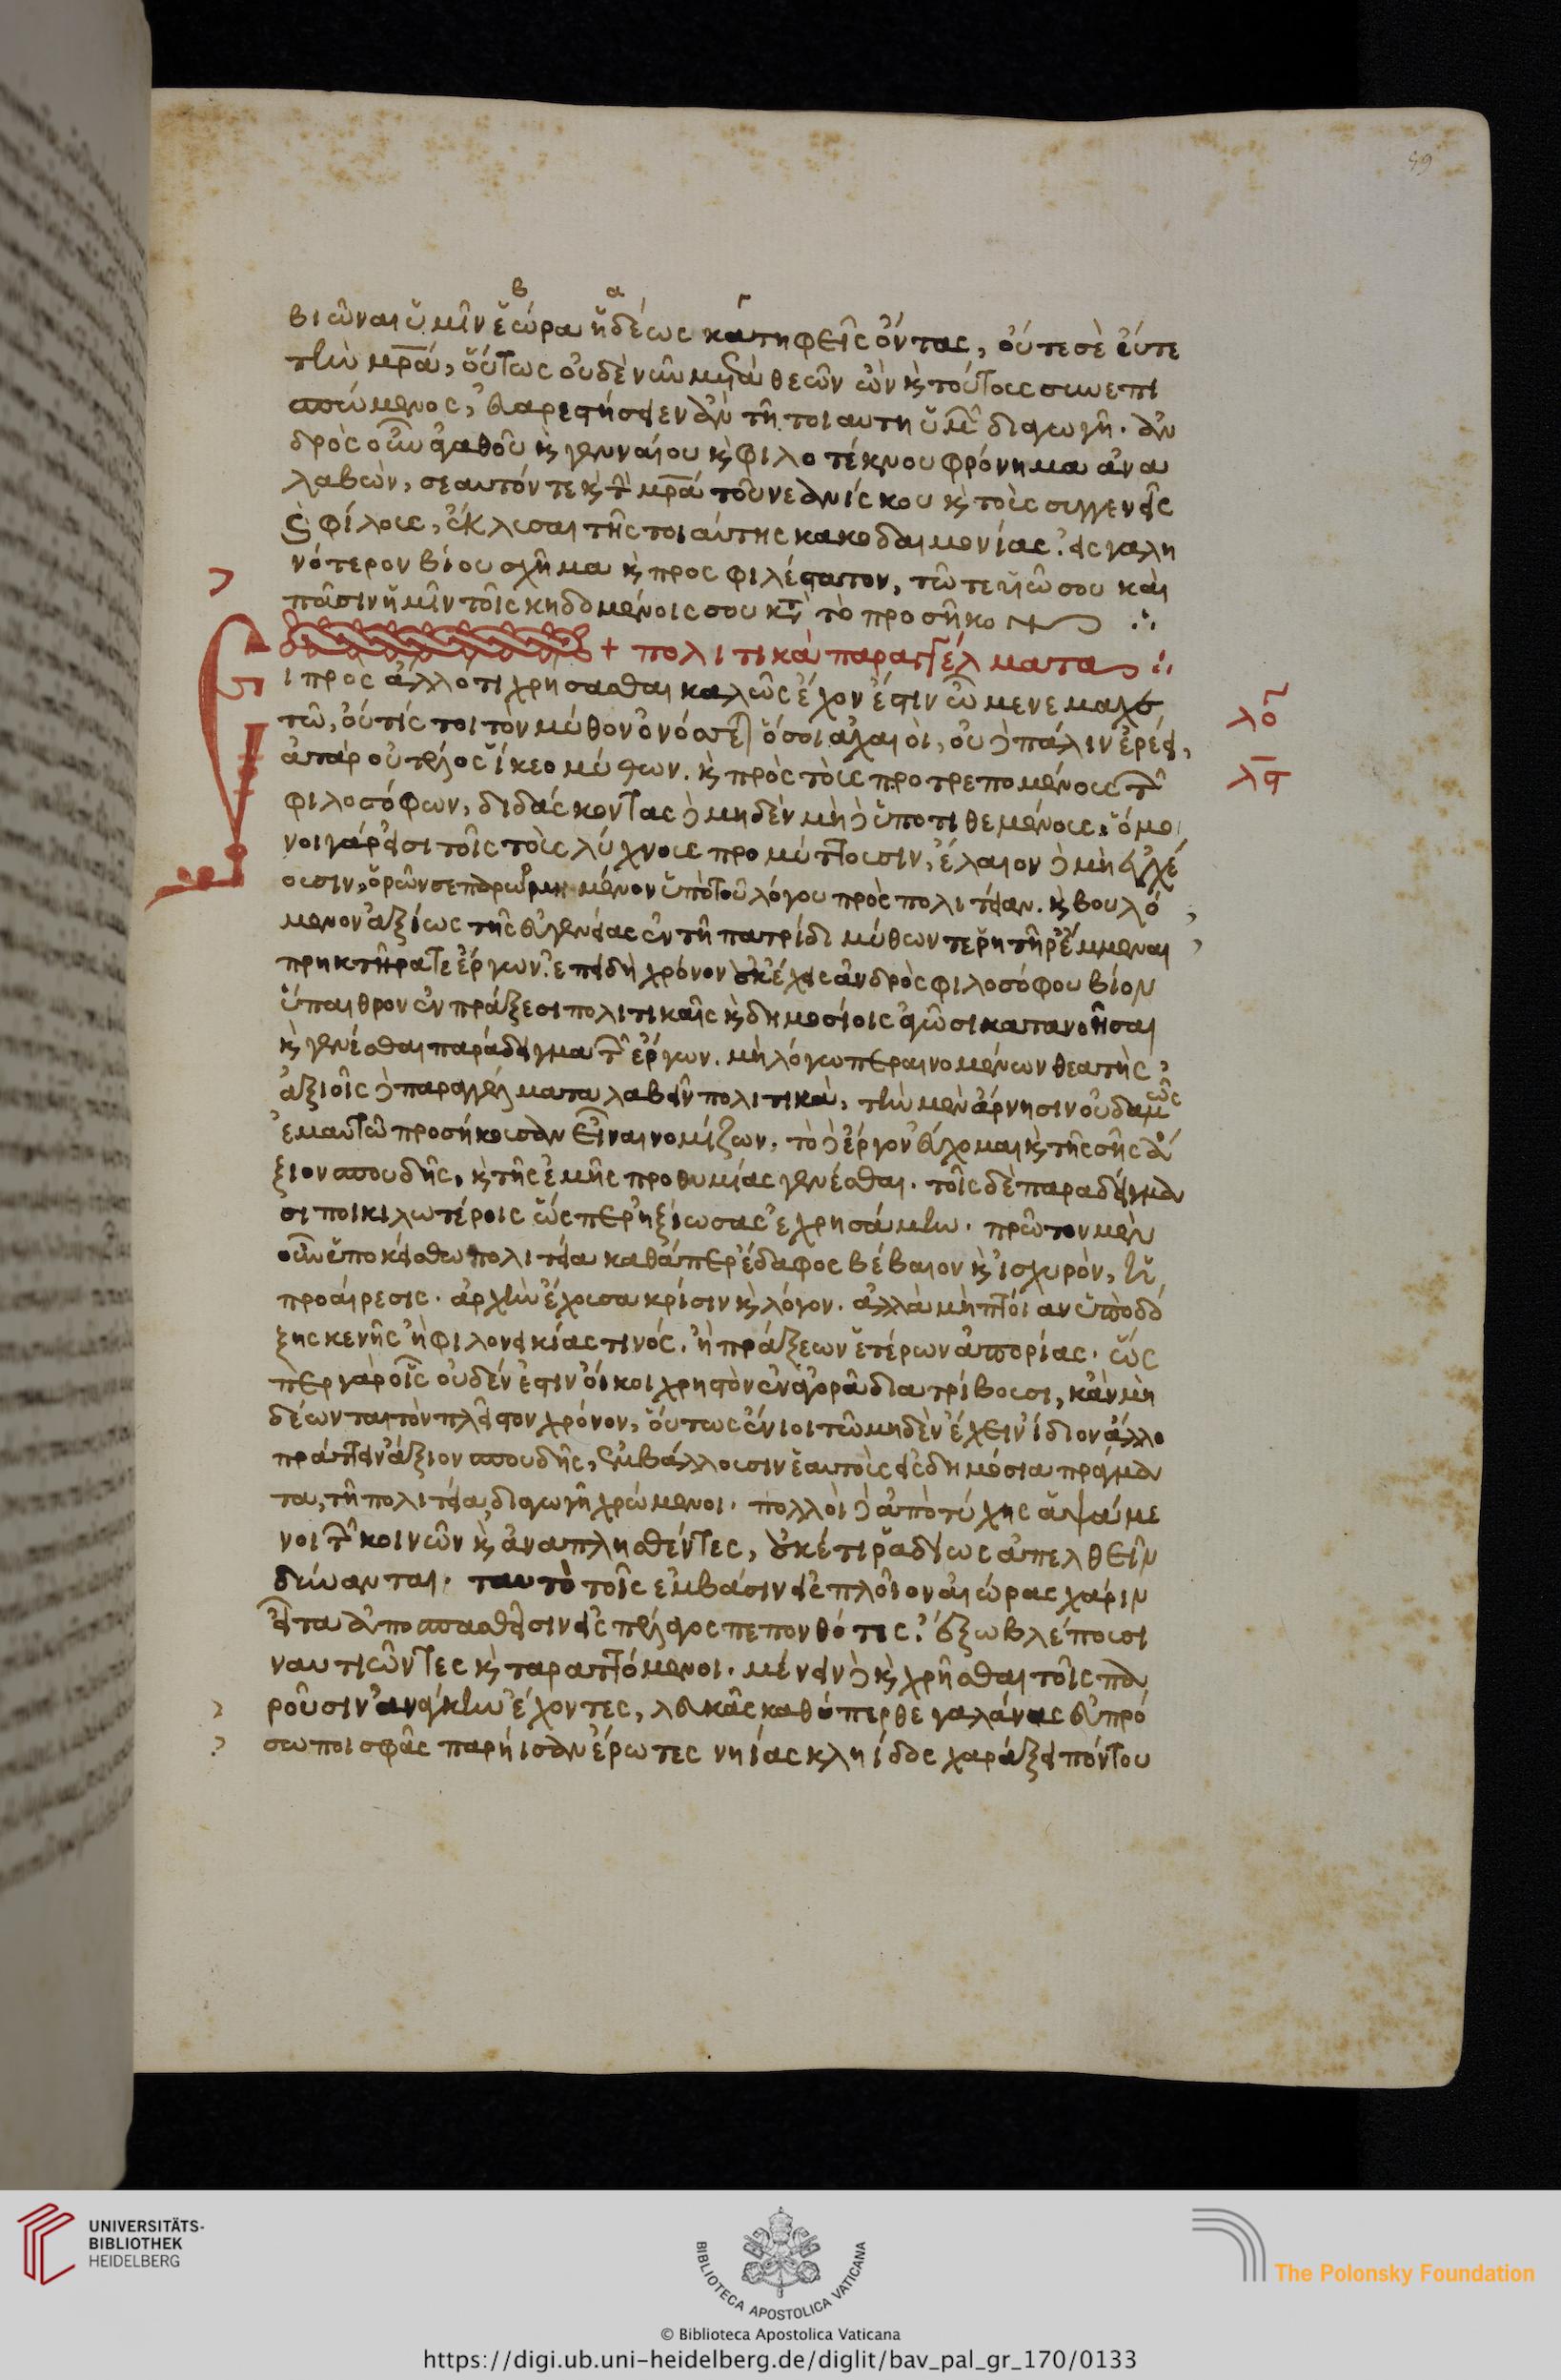 59
β α γ
βιῶναι ὑμῖν ἑώρα ἡδέως κατηφεῖς ὄντας, οὔτε σὲ οὔτε
τὴν μρ̅α, οὕτως οὐδὲ νῦν μετὰ θεῶν ὢν κ̀ τούτοις συνεστι
ώμενος, εὐαρεστήσειεν ἂν τῆ τοιαύτη ὑμῶν διαγωγῆ. ἀν
δρὸς οὖν ἀγαθοῦ κ̀ γενναίου κ̀ φιλοτέκνου φρόνημα ἀνα
λαβὼν, σεαυτόν τε κ̀ τ̀ μρ̅α τοῦ νεανίσκου κ̀ τοὺς συγγενεῖς
κ̀ φίλους, ἔκλυσαι τῆς τοιαύτης κακοδαιμονίας. εἰς γαλη
νότερον βίου σχῆμα κ̀ προσφιλέστατον, τῶ τε υἱῶ σου καὶ
πᾶσιν ἡμῖν τοῖς κηδομένοις σου κτ̀ τὸ προσῆκον ∴
+ πολιτικὰ παραγγέλματα :
Ει πρὸς ἄλλό τι χρήσασθαι καλῶς ἔχον ἐστὶν ὦ μενέμαχε
τῶ, οὔτίς τοι τὸν μῦθον ὀνόσσεται ὅσσοι ἀχαιοὶ, οὐδὲ πάλιν ἐρέει,
ἀτὰρ οὐ τέλος ἵκεο μύθων. κ̀ πρὸς τοὺς προτρεπομένους τῶν
φιλοσόφων, διδάσκοντας δὲ μηδὲν μὴδὲ ὑποτιθεμένους. ὅμοι
νοι γάρ εἰσι τοῖς τοὺς λύχνους προμύττουσιν, ἔλαιον δὲ μὴ ἐγχέ
ουσιν, ὁρῶν σε παρωρμημένον ὑπὸ τοῦ λόγου πρὸς πολιτείαν. κ̀ βουλό
μενον ἀξίως τῆς εὐγενείας ἐν τῆ πατρίδι μύθων τε ῥητῆρ᾽ ἔμμεναι
πρηκτῆρά τε ἔργων. ἐπειδὴ χρόνον οὐκ ἔχεις ἀνδρὸς φιλοσόφου βίον
ὕπαιθρον ἐν πράξεσι πολιτικαῖς κ̀ δημοσίοις ἀγῶσι κατανοῆσαι
κ̀ γενέσθαι παράδειγμα τῶν ἔργων. μὴ λόγω περαινομένων θεατὴς,
ἀξιοῖς δὲ παραγγέλματα λαβεῖν πολιτικὰ, τὴν μὲν ἄρνησιν οὐδαμῶς
ἐμαυτῶ προσήκουσαν εἶναι νομίζων. τὸ δὲ ἔργον εὔχομαι κ̀ τῆς σῆς ἄ
ξιον σπουδῆς, κ̀ τῆς ἐμῆς προθυμίας γενέσθαι. τοῖς δὲ παραδείγμα
σι ποικιλωτέροις ὥσπερ ἠξίωσας ἐχρησάμην. πρῶτον μὲν
οὖν ὑποκείσθω πολιτεία καθάπερ ἔδαφος βέβαιον κ̀ ἰσχυρὸν, ἡ
προαίρεσις. ἀρχὴν ἔχουσα κρίσιν κ̀ λόγον. ἀλλὰ μὴ πτοίαν ὑπὸ δό
ξης κενῆς ἢ φιλονεικίας τινός. ἢ πράξεων ἑτέρων ἀπορίας. ὥς
περ γὰρ οἷς οὐδέν ἐστιν οἴκοι χρηστὸν ἐν ἀγορᾶ διατρίβουσι, κἂν μὴ
δέωνται τὸν πλεῖστον χρόνον, οὕτως ἔνιοι τῶ μηδὲν ἔχειν ἴδιον ἄλλο
πράττειν ἄξιον σπουδῆς, ἐμβάλλουσιν ἑαυτοὺς εἰς δημόσια πράγμα
τα, τῆ πολιτεία, διαγωγῆ χρώμενοι. πολλοὶ δὲ ἀπὸ τύχης ἁψάμε
νοι τῶν κοινῶν κ̀ ἀναπλησθέντες, οὐκέτι ῥαδίως ἀπελθεῖν
δύνανται. ταυτὸ τοῖς ἐμβᾶσιν εἰς πλοῖον αἰώρας χάριν
εἶτα ἀποσπασθεῖσιν εἰς πέλαγος πεπονθότες. ἔξω βλέπουσι
ναυτιῶντες κ̀ ταραττόμενοι. μένειν δὲ κ̀ χρῆσθαι τοῖς πα
ροῦσιν ἀνάγκην ἔχοντες, λευκᾶς καθύπερθε γαλάνας εὐπρό
σωποι σφᾶς παρήισαν ἔρωτες νηίας κληίδος χαράξει πόντου
λος
λα
UNIVERSITÄTS-
BIBLIOTHEK
HEIDELBERG
BIBLIOTECA APOSTOLICA VATICANA
The Polonsky Foundation
© Biblioteca Apostolica Vaticana
https://digi.ub.uni-heidelberg.de/diglit/bav_pal_gr_170/0133